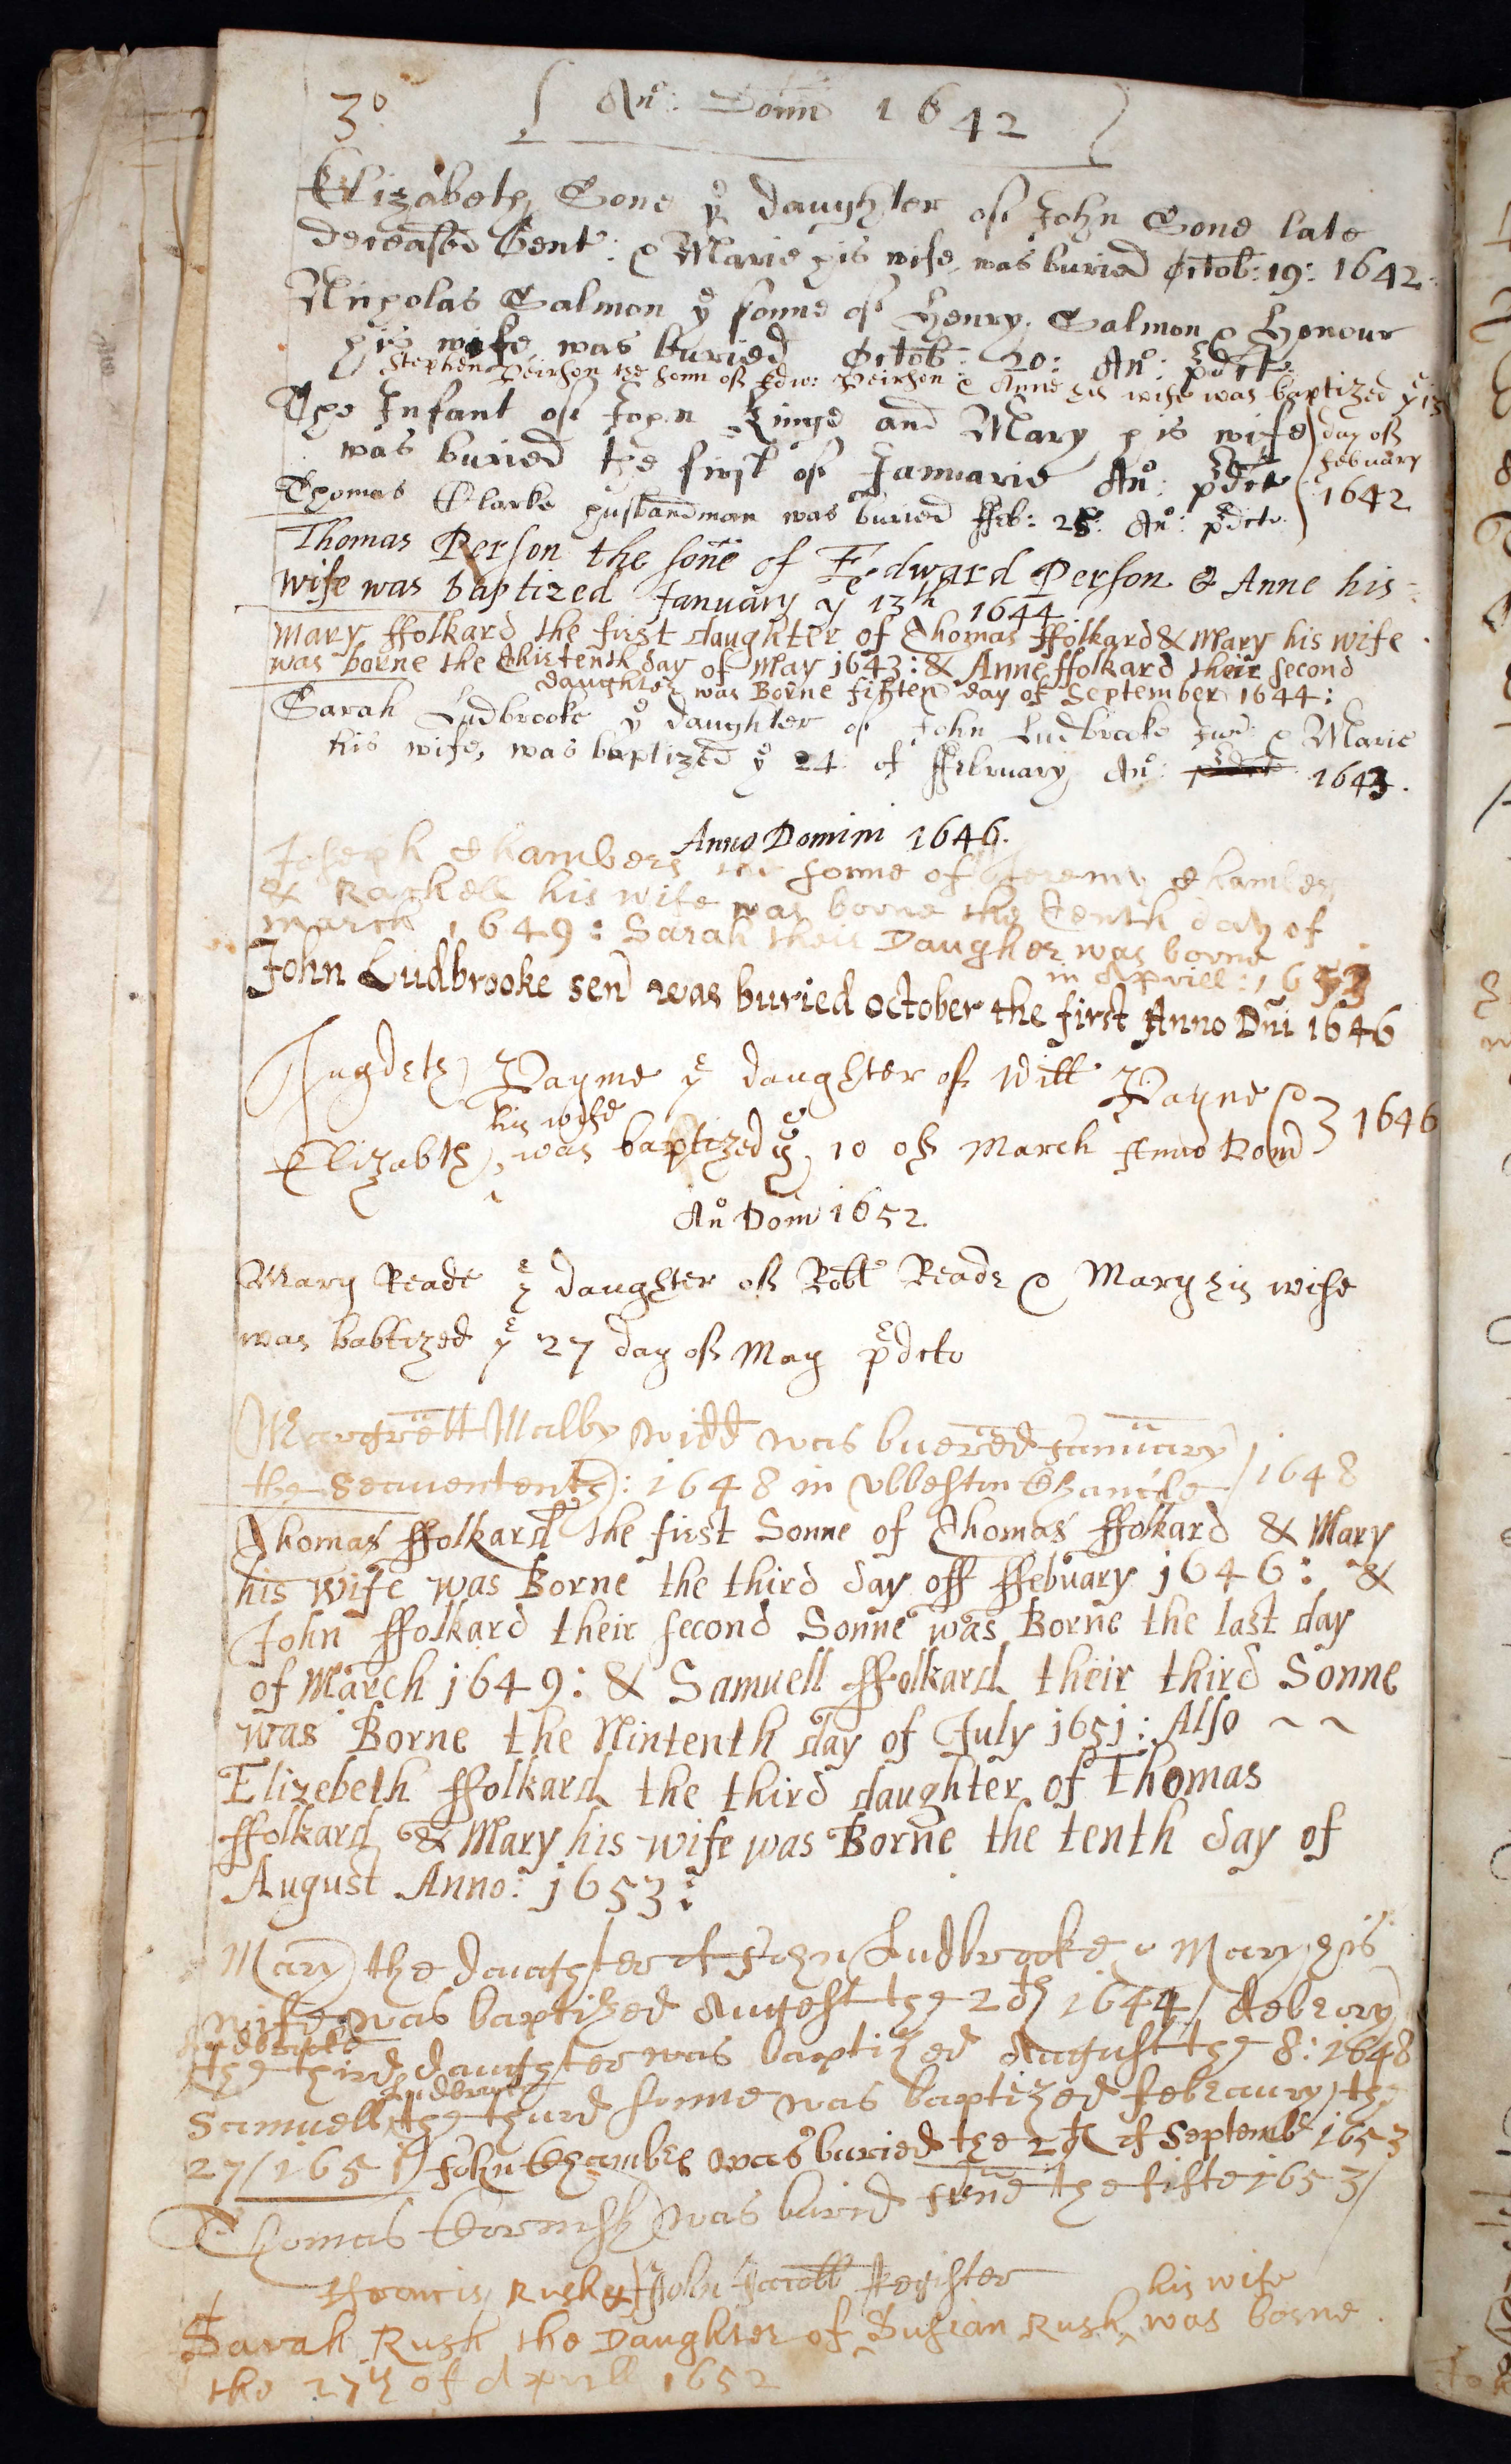 30
Ano: Domi 1642
Elizabeth Cone ye daughter of John Cone late
deceased Gent: & Marie his wife, was buried Octob: 19: 1642.
Nicholas Salmon ye sonne of Henry Salmon & Honour
his wife was buried Octob: 20: Ano: pedcto
Stephen Peirson the sonn of Edw: Peirson & Anne his wife was baptized ye 13
day of
Febuary
1642
The Infant of John Kinge and Mary his wife
was buried the first of Januarie Ano: pedcto
Thomas Clarke husbandman was buried ffeb: 28: Ano: pedcto
Thomas Person the sone of Edward Person & Anne his
wife was baptized January ye 13th 1644
Mary ffolkard the first daughter of Thomas ffolkard & Mary his wife
was borne the Thirtenth day of May 1643: & Anne ffolkard their second
daughter was Borne fiften day of September 1644:
Sarah Ludbrooke ye daughter of John Ludbrooke Junr & Marie
his wife, was baptized ye 24 of ffebruary Ano: pedcto 1643.
Anno Domini 1646.
Joseph Chambers the sonne of Jeremy Chambers
& Rachell his wife was borne the Tenth day of
march 1649: Sarah their Daugher was borne
in Aprill: 1653
John Ludbrooke sen was buried october the first Anno Dni 1646
Payme ye daughter of Will Payne &
his wife
Elizabth, was baptized ye 10 of March Anno Dom 1646
Ano Dom 1652
Mary Reade ye daughter of Robt Reade & Mary his wife
was babtized ye 27 day of May pedcto
Margrett Malby widd was buered January
the Seauententh: 1648 in Vbbeston Chancle 1648
Thomas ffolkard the first Sonne of Thomas ffolkard & Mary
his wife was Borne the third day off ffebuary 1646: &
John ffolkard their second Sonne was Borne the last day
of March 1649: & Samuell ffolkard their third Sonne
was Borne the Nintenth day of July 1651: Also ~ ~
Elizebeth ffolkard the third daughter of Thomas
ffolkard & Mary his wife was Borne the tenth day of
August Anno: 1653:
Mary the daughter of John Ludbrooke & Mary his
wife was baptized Augest the 2th 1644 / debrory
Ludbrooke
the third daughter was baptized August the 8: 1648
Ludbrooke
Samuell the thurd sonne was baptized febraury the
27 / 1651 John Chambers was buried the 2th of Septemb 1653
Thomas was buried June the fifte 1653
ffrancis Rush & John Jacobb Register his wife
Sarah Rush the Daughter of Susian Rush was borne
the 27th of Aprill 1652